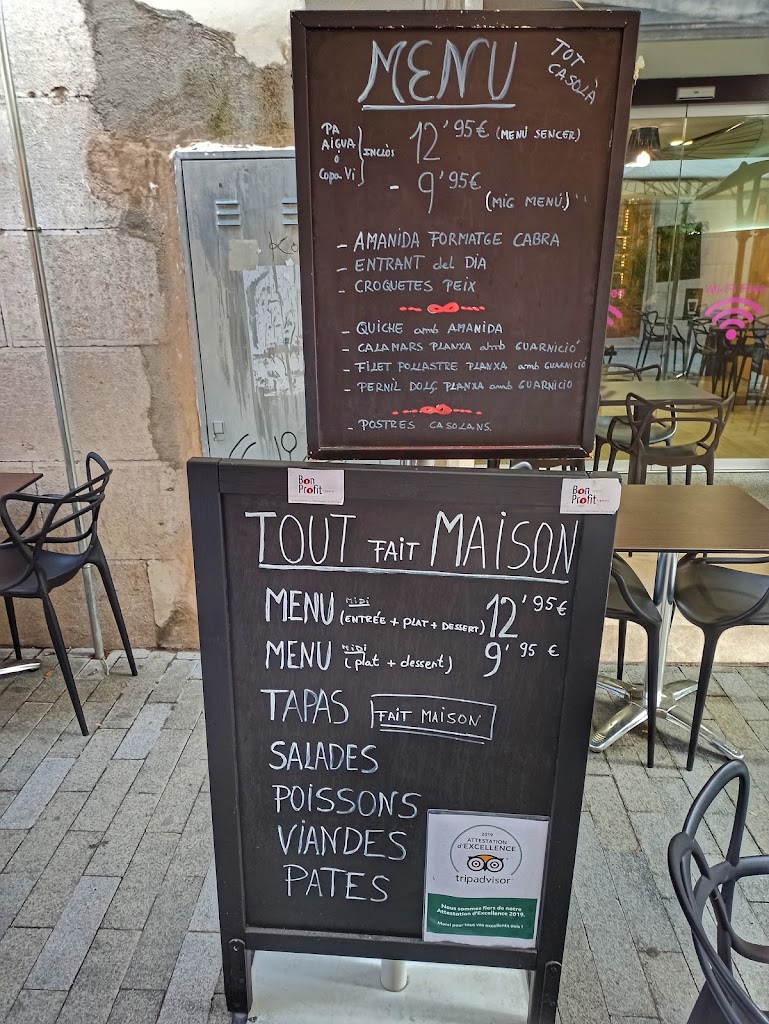 MENU
TOT
CASOLÀ
PA
AIGUA
Ó
Copa Vi
INCLÒS
12'95€ (MENÚ SENCER)
- 9'95€
(MIG MENÚ)
- AMANIDA FORMATGE CABRA
- ENTRANT del DIA
- CROQUETES PEIX
- QUICHE amb AMANIDA
- CALAMARS PLANXA amb GUARNICIÓ
- FILET POLLASTRE PLANXA amb GUARNICIÓ
- PERNIL DOLÇ PLANXA amb GUARNICIO
- POSTRES CASOLANS.
Wi-Fi Free
Bon
Profit
Bon
Profit
TOUT FAIT MAISON
MENU MIDI (ENTRÉE + PLAT + DESSERT) 12'95€
MENU MIDI (plat + dessert) 9'95 €
TAPAS FAIT MAISON
SALADES
POISSONS
VIANDES
PATES
2019
ATTESTATION
d'EXCELLENCE
tripadvisor
Nous sommes fiers de notre
Attestation d'Excellence 2019.
Merci pour tous vos excellents avis !